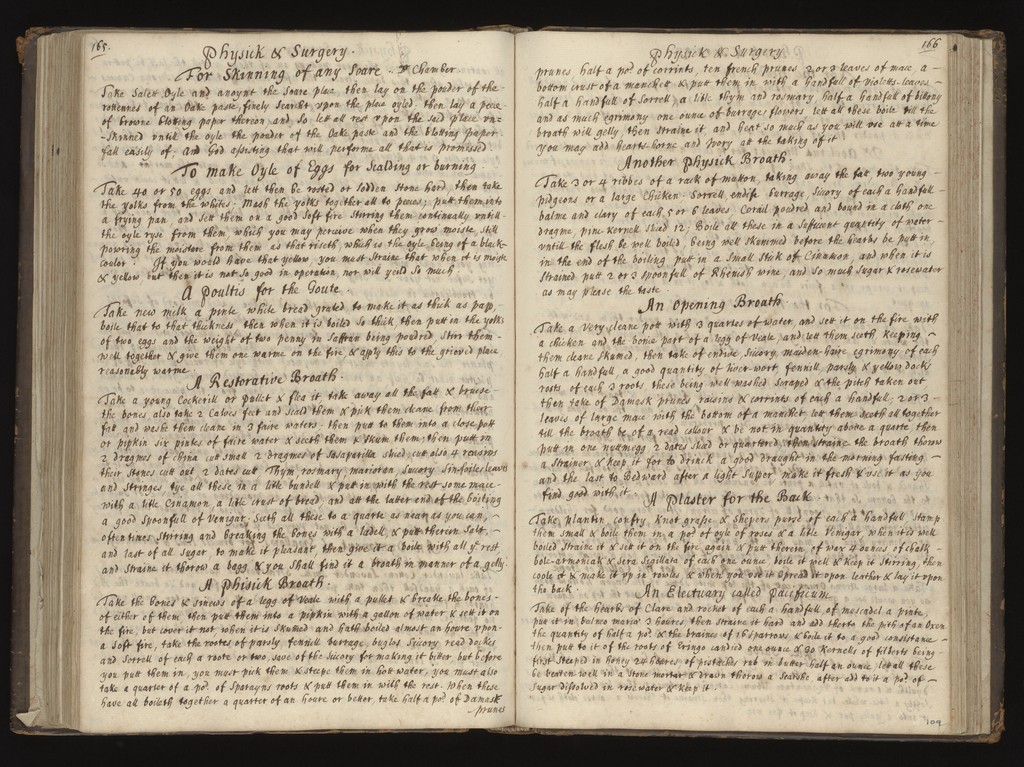 165.
Physick & Surgery.
For Skinning of any Soare. Dr Chamber
Take Salett Oyle and anoynt the Soare place, then lay on the pouder of the
rottennes of an Oake paste, finely Searsht, upon the place oyled, then lay a peice
of browne blotting paper thereon, and So lett all rest upon the said place un=
-skinned untill the oyle the pouder of the Oake paste and the blotting paper
fall easily of: And God assisting that will performe all that is promissed.
To make Oyle of Eggs for Scalding or burning
Take 40 or 50 eggs and lett them be rosted or Sodden Stone hard, then take
the yolks from the whites; Mash the yolks together all to peices; putt them into
a frying pan, and sett them on a good Soft fire Stirring them continually untill
the oyle ryse from them, which you may perceive when they grow moiste, still
powring the moisture from them as that riseth, which is the oyle being of a black
coolor: If you would have that yellow, you must Straine that when it is moiste
& yellow but then it is not So good in operation, nor will yeild So much
A Poultis for the Goute
Take new milk a pinte, white bread grated to make it as thick as papp,
boile that to that thickness, then when it is boiled So thick, then putt in the yolks
of two eggs and the weight of two penny in Saffran being poudred Stirr them
well together & give them one warme on the fire, & apply this to the grieved place
reasonably warme
A Restorative Broath.
Take a young Cockerill or Pullet & flea it, take away all the fatt & bruise
the bones also take 2 Calves feet and Scald them & pick them cleane from their
fat and washe them cleane in 3 faire waters, then putt to them into a close pott
or pipkin six pintes of faire water & seeth them & Skum them; then putt in
2 dragmes of China cutt Small 2 dragmes of Sasaparilla sliced cut also 4 reasons
their Stones cutt out 2 dates cutt Thym, rosmary, marioran, Succory Sinfoile leaves
and Stringes tye all these in a litle bundell & putt in with the rest Some mace
with a litle Cinamon, a litle crust of bread, and att the latter end of the boiling
a good Spoonfull of Venegar; Seeth all these to a quarte as near as you can,
often times Stirring and breaking the bones with a ladell, & putt therein Salt,
and last of all Sugar to make it pleasant, then give it a boile with all ye rest
and Straine it thorow a bagg & you Shall find it a broath in manner of a gelly
A Phisick Broath.
Take the bones & sinews of a legg of Veale with a pullet & breake the bones
of either of them then putt them into a pipkin with a gallon of water & sett it on
the fire, but cover it not, when it is Skumed and hath boiled almost an houre upon
a Soft fire, take the rootes of parsly fennill burrage, buglos Sucory read docks
and Sorrell of each a roote or two, save of the Succory for making it bitter, but before
you putt them in, you must pick them & steepe them in hott water, you must also
take a quarter of a po: of Sparagus roots & putt them in with the rest. When these
have all boileth together a quarter of an houre or better, take half a po: of Damask
-prunes
166
Physick & Surgery
prunes half a po: of corrints, ten french prunes 2 or 3 leaves of mace, a
bottom crust of a manchett & putt them in with a handfull of violetts leaves
half a handfull of Sorrell, a litle thym and rosmary, half a handfull of bittony
and as much egrimony one ounce of burrage flowers, lett all these boile till the
broath will gelly, then Straine it and heat so much as you will use att a time
you may add hearts-horne, and Ivory at the taking of it
Another Physick Broath.
Take 3 or 4 ribbes of a rack of mutton, taking away the fat, two young
pidgeons or a large Chicken Sorrell endife burrage, Sucory of each a handfull
balme and clary of each 5 or 6 leaves Corail poudred and bound in a cloth one
dragme, pine kernell sliced 12; Boile all these in a Sufficient quantity of water
untill the flesh be well boiled, being well skummed before the hearbs be putt in,
in the end of the boiling putt in a Small stick of Cinamon, and when it is
Strained putt 2 or 3 spoonfull of Rhenish wine, and so much Sugar & rosewater
as may please the taste.
An Opening Broath.
Take a very cleane pott with 3 quartes of water, and sett it on the fire with
a chicken and the bonie part of a legg of Veale, and lett them seeth, keeping
them cleane Skumed, then take of endive, Succory, maiden-haire egrimony of each
half a handfull, a good quantity of liver-wort, fennill, parsly & yellow dock
rosts, of each 3 roots, these being well washed Scraped & the pitch taken out
then take of Damask prunes raisins & corrints of each a handfull, 2 or 3
leaves of large mace with the bottom of a manchet lett them seeth all together
till the broath be of a read collour & be not in quantity above a quarte, then
putt in one nuttmegg 2 dates sliced or quartered, then straine the broath thorow
a Strainer & keep it for to drinck a good draught in the morning fasting,
and the last to bedward after a light Supper make it fresh & use it as you
find good with it.
A Plaster for the Back
Take plantin, confry, knot grasse & Shepers purse of each a handfull, Stamp
them small & boile them in a po: of oyle of roses & a litle Venegar, when it is well
boiled Straine it & set it on the fire again & putt therein of wax 4 ounces of chalk
bole-armoniak & Sera Sigillata of each one ounce, boile it well & keep it Stirring, then
coole it & make it up in rowles & when you use it spread it upon leather & lay it upon
the back.
An Electuary called Pacificum
Take of the hearbs of Clare and rocket of each a handfull, of muscadel a pinte,
put it in balneo maria 3 houres then Straine it hard and add therto the pith of an Oxen
the quantity of half a po: & the braines of 16 sparrows & boile it to a good consistance
then putt to it of the roots of Eringo candied one ounce & 30 kernells of filberts being
first Steeped in honey 24 houres of pistaches rub in butter half an ounce, let all these
be beaten well in a Stone mortar & drawn thorow a Searshe after add to it a po: of
Sugar dissolved in rosewater & keep it.
109